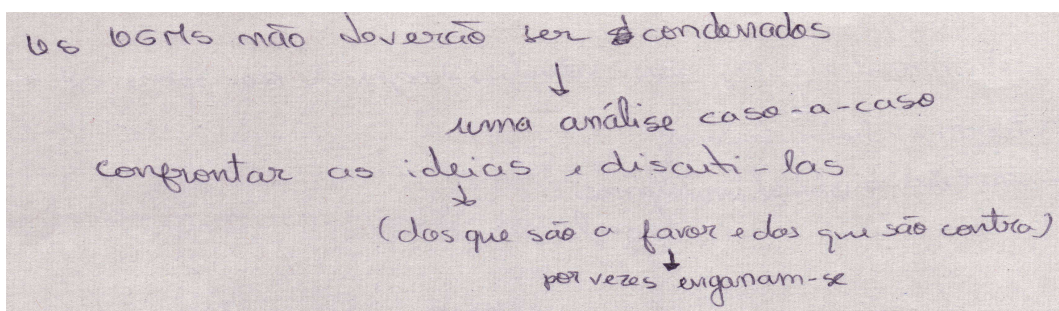 Os OGMs não deverão ser condenados
↓
uma análise caso-a-caso
confrontar as ideias e discuti-las
↓
(dos que são a favor e dos que são contra)
↓
por vezes enganam-se